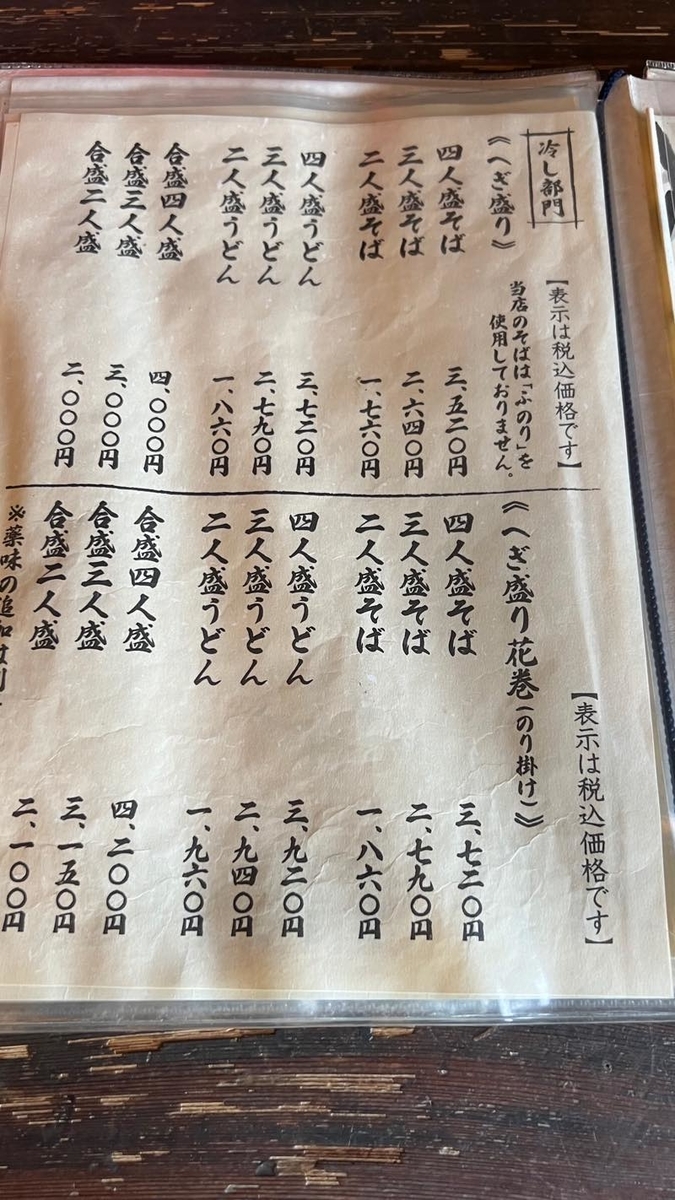 冷し部門
【表示は税込価格です】
《へぎ盛り》
当店のそばは「ふのり」を
使用しておりません。
四人盛そば 三、五二〇円
三人盛そば 二、六四〇円
二人盛そば 一、七六〇円
四人盛うどん 三、七二〇円
三人盛うどん 二、七九〇円
二人盛うどん 一、八六〇円
合盛四人盛 四、〇〇〇円
合盛三人盛 三、〇〇〇円
合盛二人盛 二、〇〇〇円
【表示は税込価格です】
《へぎ盛り花巻(のり掛け)》
四人盛そば 三、七二〇円
三人盛そば 二、七九〇円
二人盛そば 一、八六〇円
四人盛うどん 三、九二〇円
三人盛うどん 二、九四〇円
二人盛うどん 一、九六〇円
合盛四人盛 四、二〇〇円
合盛三人盛 三、一五〇円
合盛二人盛 二、一〇〇円
※薬味の追加は